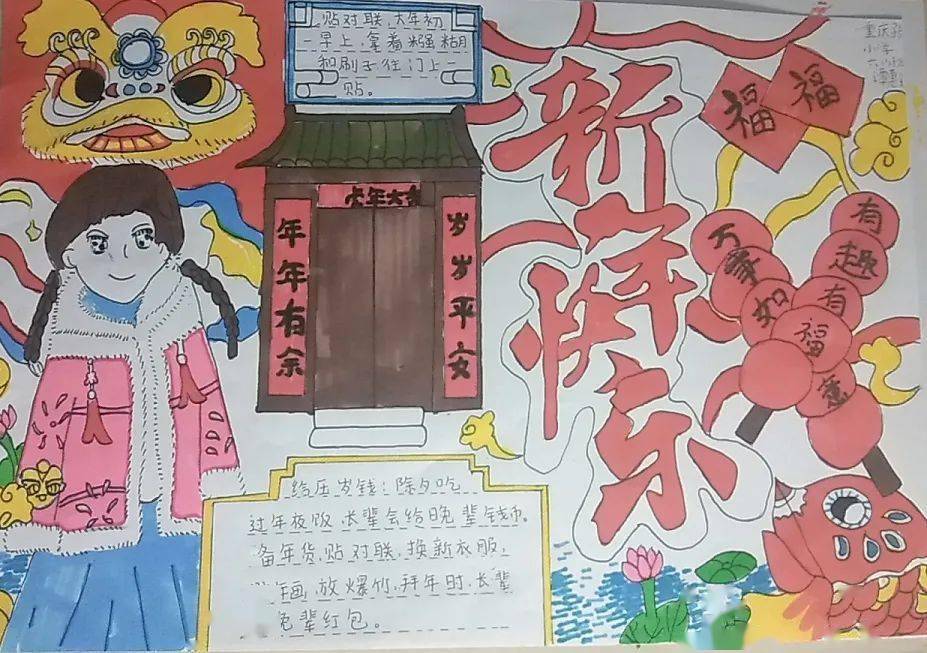 贴对联，大年初
早上，拿着糨糊
和刷子往门上一
贴。
虎年大吉
年年有余
岁岁平安
新年快乐
福
福
万事如意
有趣有福
给压岁钱：除夕吃
过年夜饭，长辈会给晚辈钱币。
备年货，贴对联，换新衣服，
年画，放爆竹，拜年时，长辈
晚辈红包。